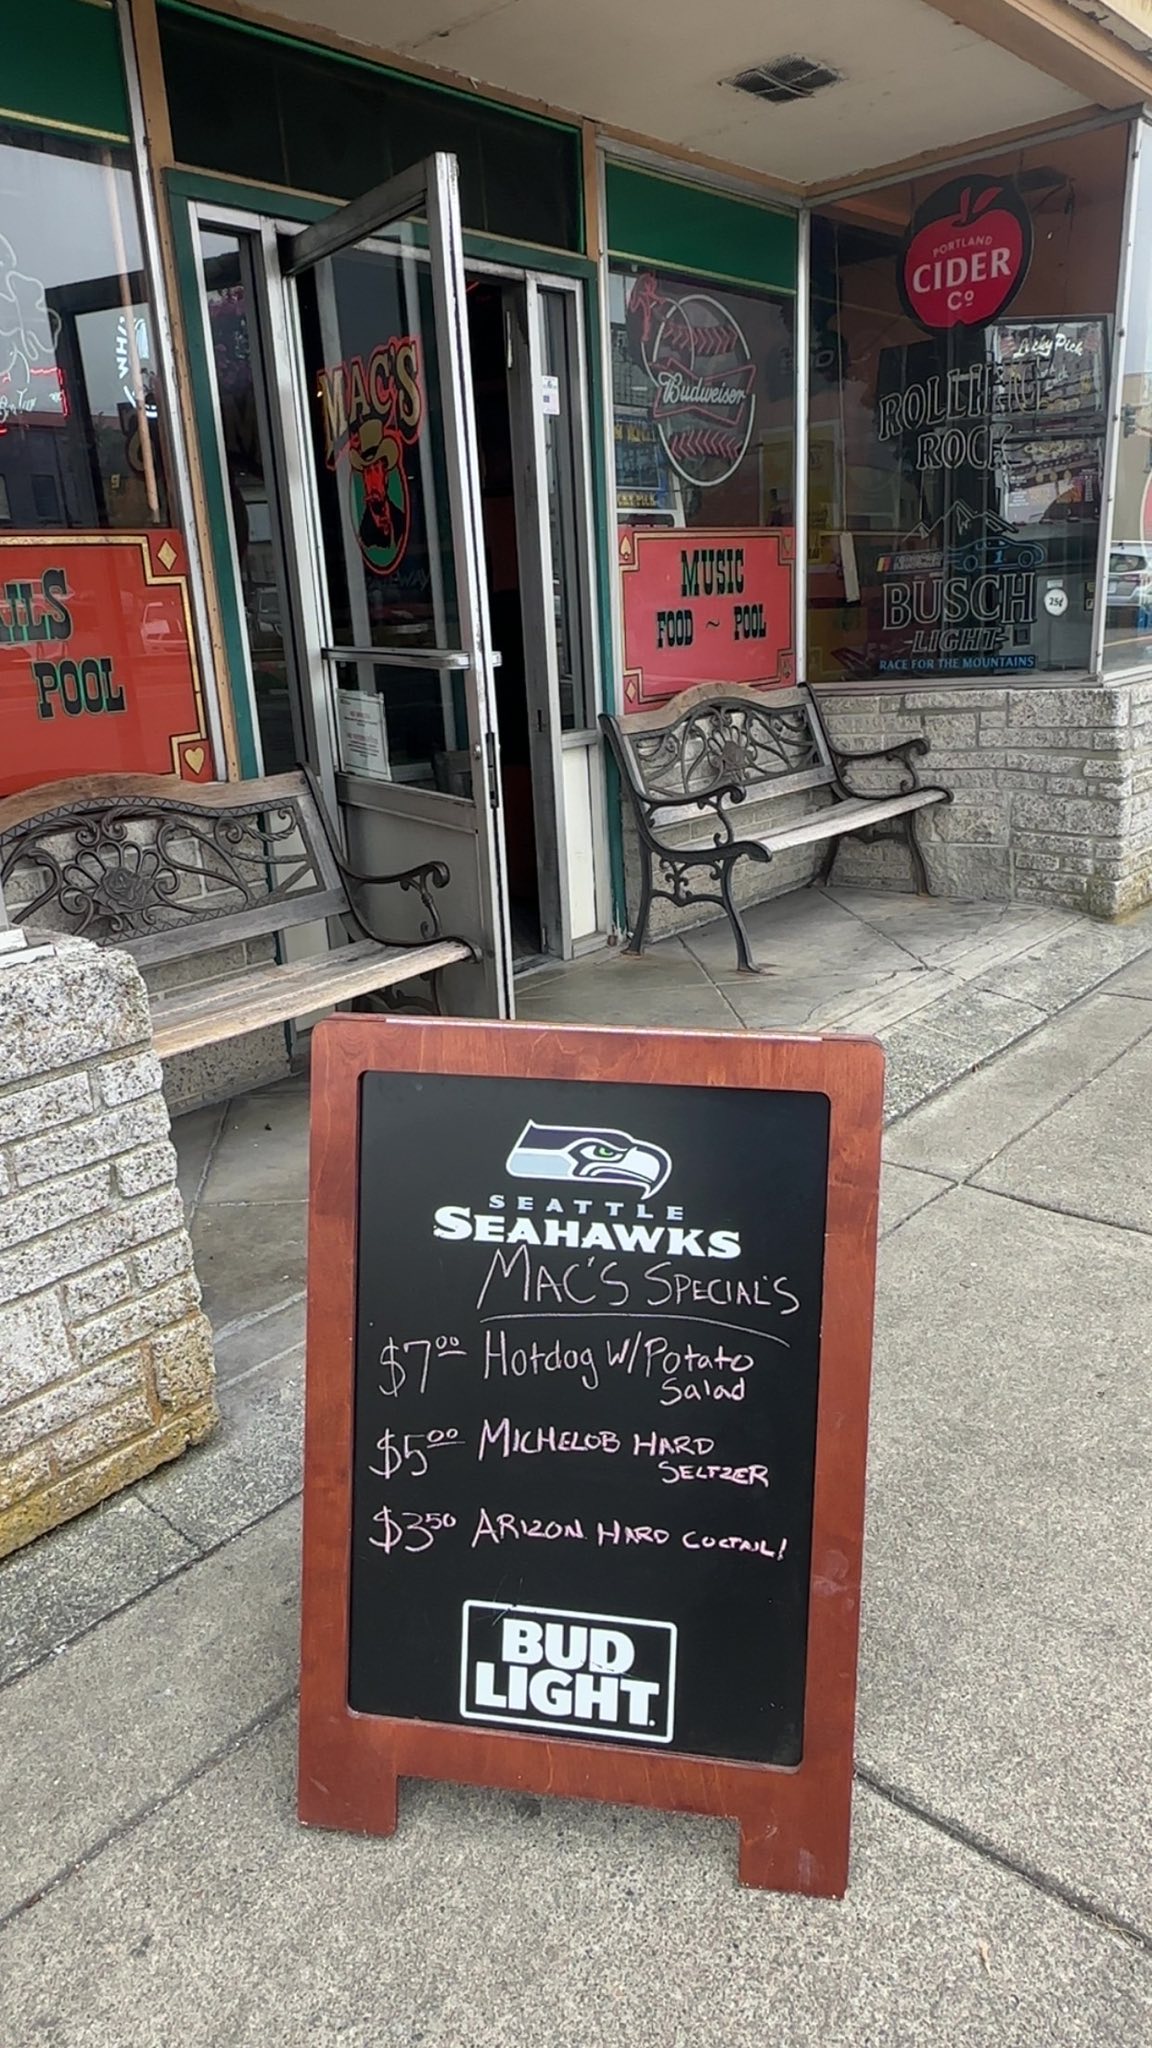 MAC'S
Budweiser
PORTLAND
CIDER
Co
Lucky Pick
ROLLING
ROCK
BUSCH
LIGHT
RACE FOR THE MOUNTAINS
25¢
MUSIC
FOOD ~ POOL
ILS
POOL
SEATTLE
SEAHAWKS
MAC'S SPECIAL'S
$7.00 Hotdog W/Potato
Salad
$5.00 MICHELOB HARD
SELTZER
$3.50 ARIZON HARD COCTAIL!
BUD
LIGHT.